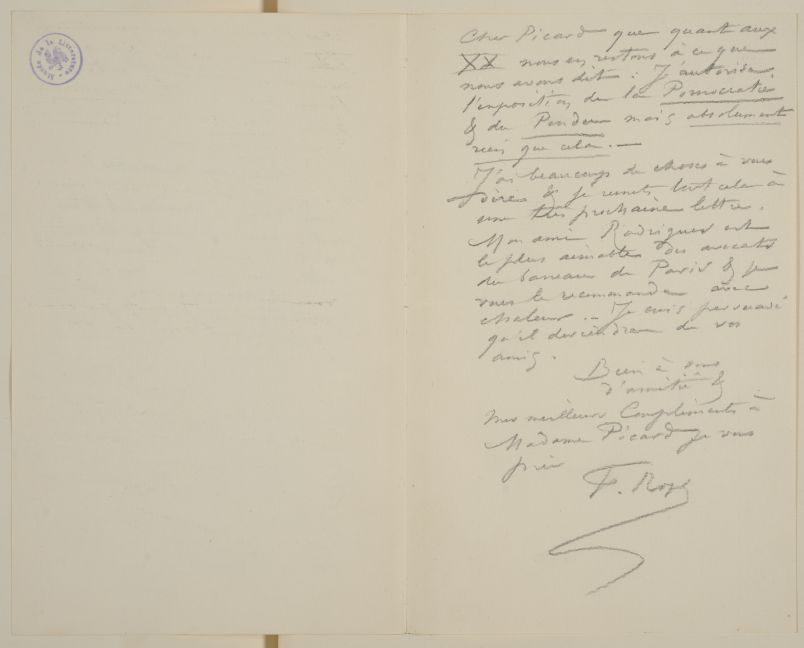 Musée de la Littérature
Cher Picard que quant aux
XX nous en restons à ce que
nous avons dit : J'autorise
l'exposition de la Pornocratie
& du Pendu mais absolument
rien que cela. —
J'ai beaucoup de choses à vous
dire & je remets tout cela à
une très prochaine lettre.
Mon ami Rodrigues est
le plus aimable des avocats
du barreau de Paris & je
vous le recommande avec
chaleur. – Je suis persuadé
qu'il deviendra de vos
amis.
Bien à vous
d'amitié &
mes meilleurs Compliments à
Madame Picard je vous
prie
F. Rops